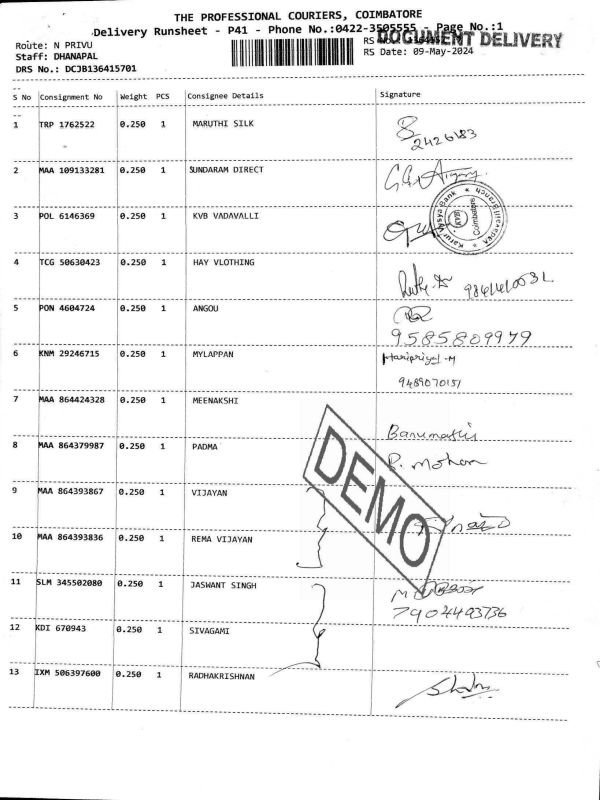 THE PROFESSIONAL COURIERS, COIMBATORE
Delivery Runsheet - P41 - Phone No.:0422-3505555 - Page No.:1
DOCUMENT DELIVERY
Route: N PRIVU
RS No.:
Staff: DHANAPAL
RS Date: 09-May-2024
DRS No.: DCJB136415701
S No Consignment No Weight PCS Consignee Details Signature
1 TRP 1762522 0.250 1 MARUTHI SILK
2426183
2 MAA 109133281 0.250 1 SUNDARAM DIRECT
3 POL 6146369 0.250 1 KVB VADAVALLI
Karur Vysya Bank
KVB
Coimbatore
4 TCG 50630423 0.250 1 HAY VLOTHING
5 PON 4604724 0.250 1 ANGOU
9585809979
6 KNM 29246715 0.250 1 MYLAPPAN Haripriya-M
9489070151
7 MAA 864424328 0.250 1 MEENAKSHI
Banumathi
8 MAA 864379987 0.250 1 PADMA
R. Mohan
9 MAA 864393867 0.250 1 VIJAYAN
DEMO
10 MAA 864393836 0.250 1 REMA VIJAYAN
11 SLM 345502080 0.250 1 JASWANT SINGH
7904493736
12 KDI 670943 0.250 1 SIVAGAMI
13 IXM 506397600 0.250 1 RADHAKRISHNAN